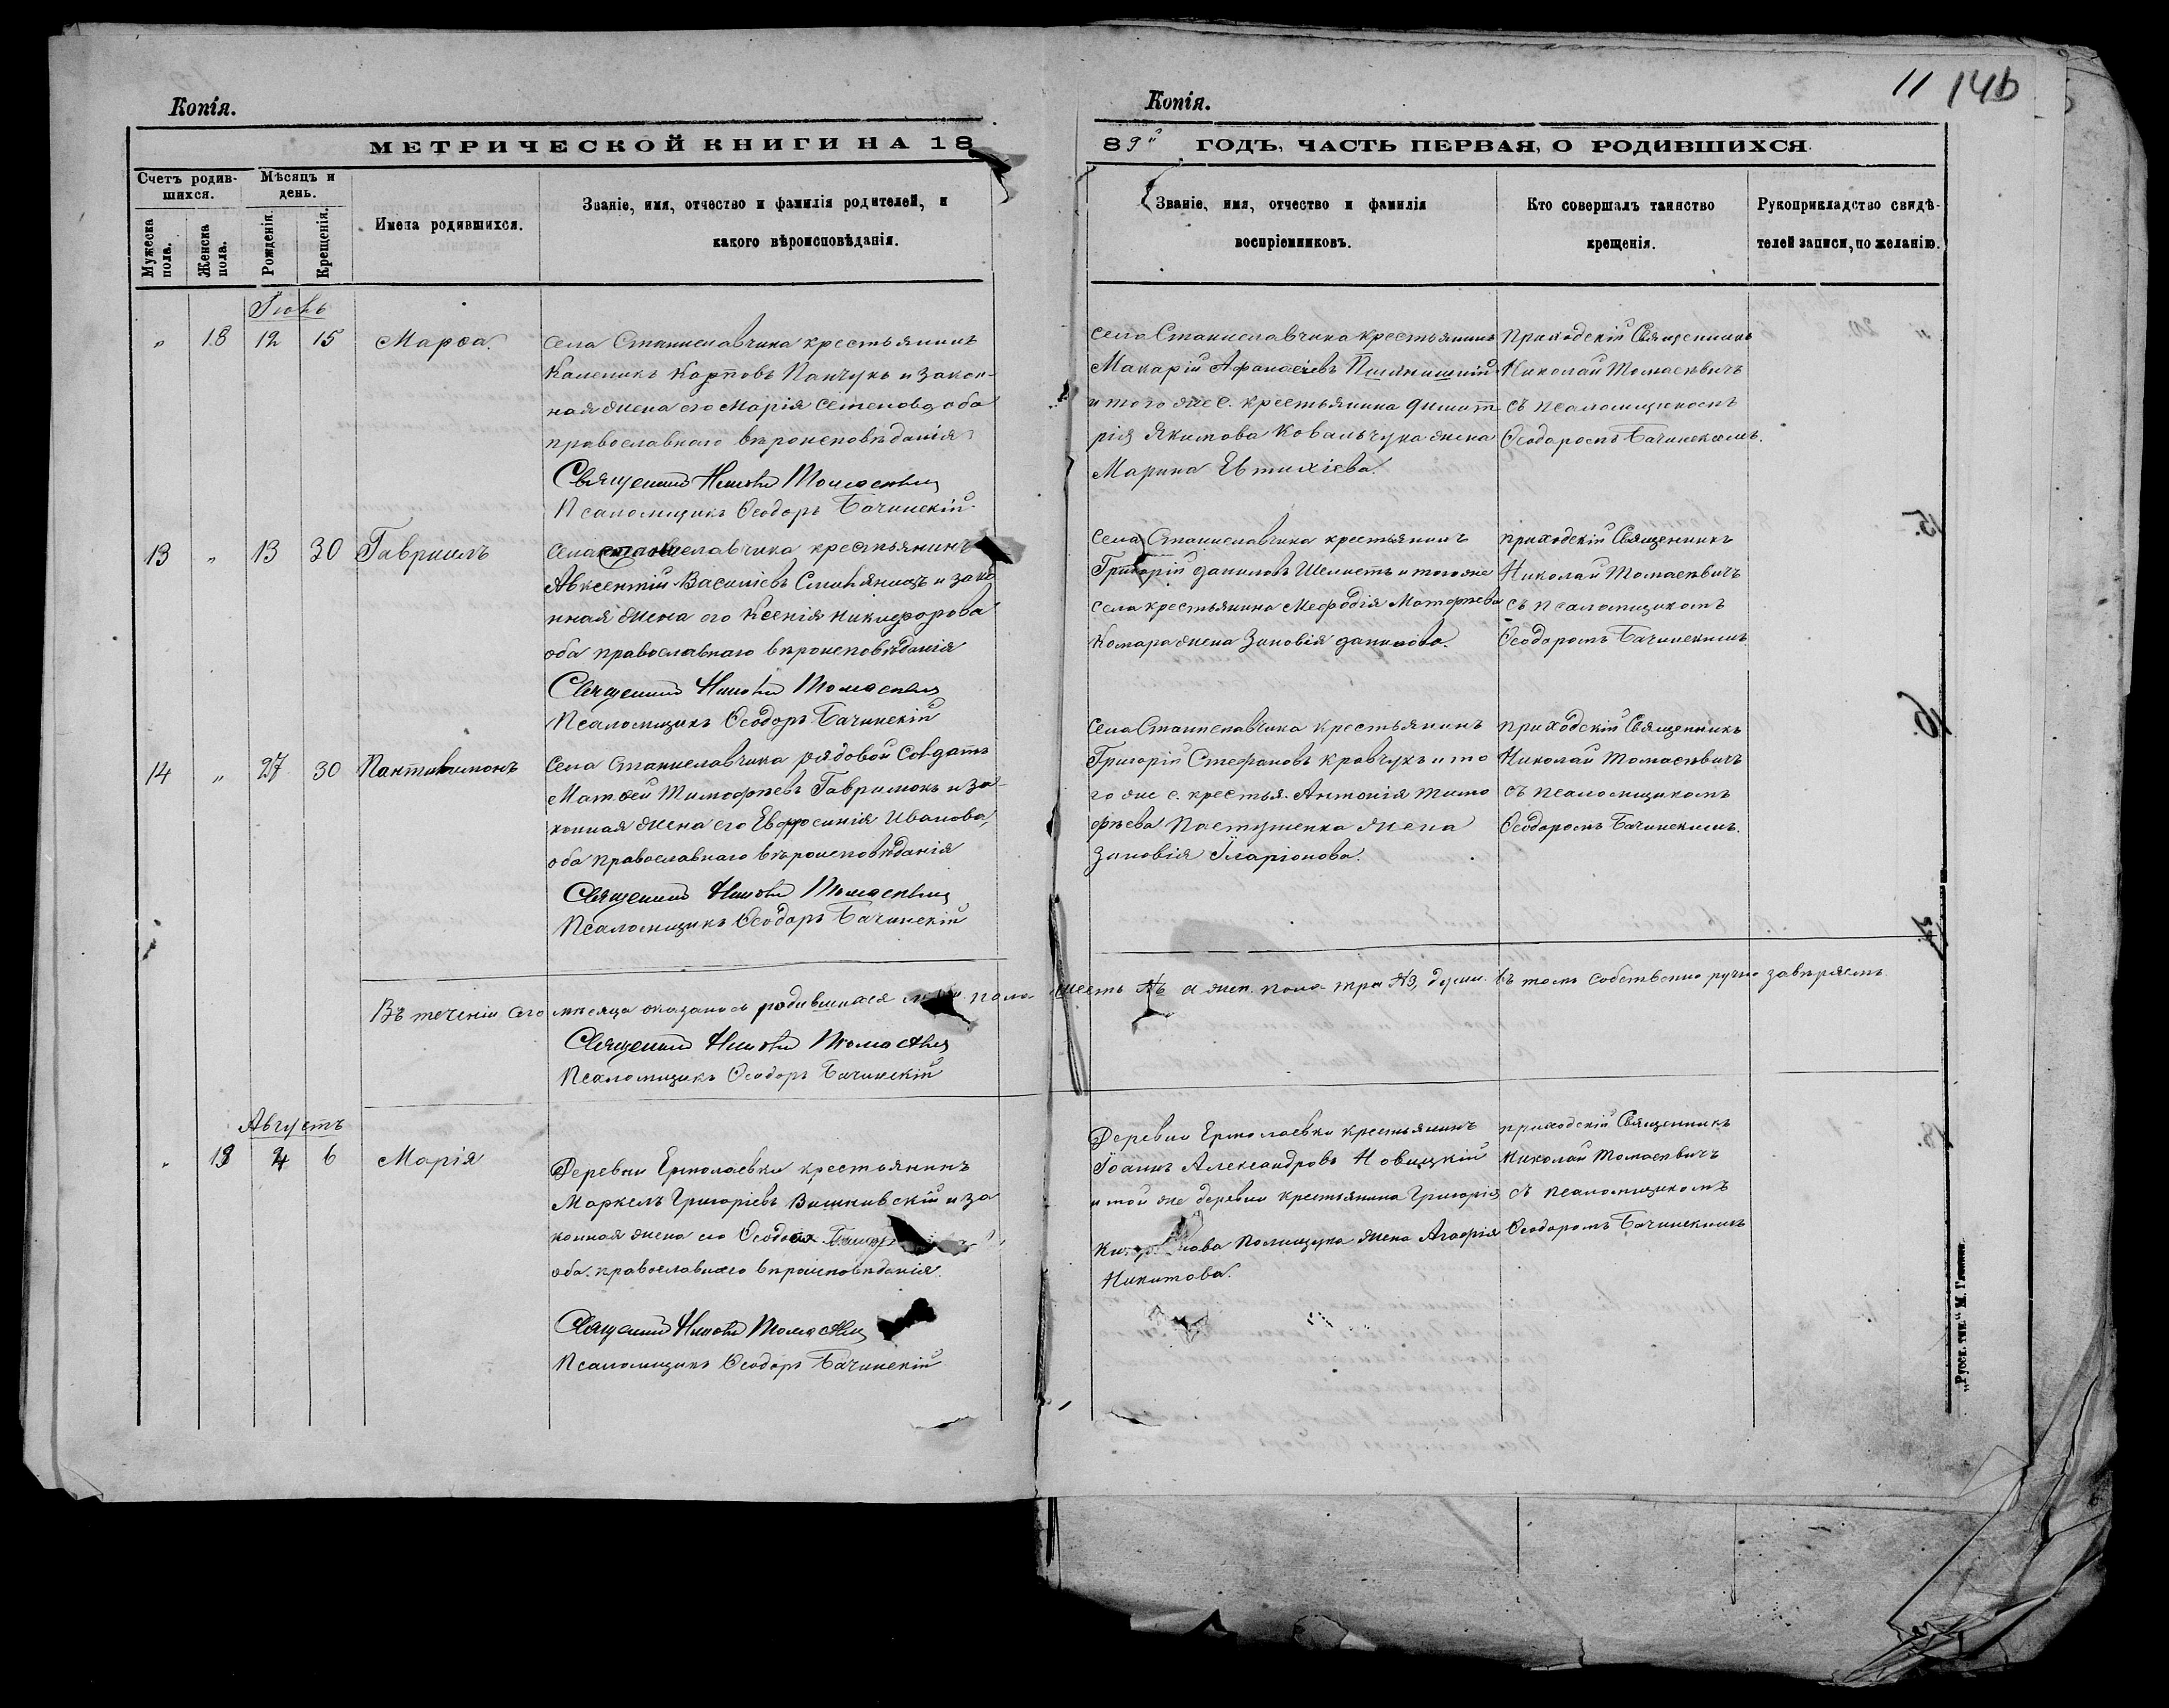 11 14b
Копія.
МЕТРИЧЕСКОЙ КНИГИ НА 18
Счетъ родив-
шихся.
Мѣсяцъ и
день.
Мужеска
пола.
Женска
пола.
Рожденія.
Крещенія.
Имена родившихся.
Званіе, имя, отчество и фамилія родителей, и
какого вѣроисповѣданія.
" 18 12 15 Марѳа.
Села Станиславчика крестьянинъ
Каленикъ Карповъ Панчукъ и закон-
ная жена его Марія Семенова, оба
православнаго вѣроисповѣданія
Священникъ Николай Томасевичъ
Псаломщикъ Ѳеодоръ Бачинскій
13 " 13 30 Гавріилъ
Села Станиславчика крестьянинъ
Авксентій Василіевъ и зако
нная жена его Ксенія Никифорова
оба православнаго вѣроисповѣданія
Священникъ Николай Томасевичъ
Псаломщикъ Ѳеодоръ Бачинскій
14 " 27 30 Пантилимонъ
Села Станиславчика рядовой Солдатъ
Матѳей Тимофѣевъ Гаврилюкъ и за-
конная жена его Евфросинія Иванова,
оба православнаго вѣроисповѣданія
Священникъ Николай Томасевичъ
Псаломщикъ Ѳеодоръ Бачинскій
Въ теченіи сего мѣсяца оказалось родившихся муж. пола шесть а жен. пола три №3, души. въ томъ собственно ручно завѣряемъ.
Священникъ Николай Томасевичъ
Псаломщикъ Ѳеодоръ Бачинскій
Августъ
" 19 4 6 Марія
Деревни Ермолаевки крестьянинъ
Маркелъ Григоріевъ и за
конная жена его
оба православнаго вѣроисповѣданія.
Священникъ Николай Томасевичъ
Псаломщикъ Ѳеодоръ Бачинскій
Копія.
89й ГОДЪ, ЧАСТЬ ПЕРВАЯ, О РОДИВШИХСЯ.
Званіе, имя, отчество и фамилія
воспріемниковъ.
Кто совершалъ таинство
крещенія.
Рукоприкладство свидѣ-
телей записи, по желанію.
Села Станиславчика крестьянинъ
Макарій Афанасіевъ
и того же с. крестьянина Димит
рія Якимова Ковальчука жена
Марина Евтихіева.
Приходскій Священникъ
Николай Томасевичъ
съ псаломщикомъ
Ѳеодоромъ Бачинскимъ.
Села Станиславчика крестьянинъ
Григорій Даниловъ Шелистъ и того же
села крестьянина Меѳодія Матфѣева
Комара жена Зиновія Данилова.
приходскій Священникъ
Николай Томасевичъ
съ псаломщикомъ
Ѳеодоромъ Бачинскимъ
Села Станиславчика крестьянинъ
Григорій Стефановъ Кравчукъ и то
го же с. крестья. Антонія Тимо
фѣева Пастушенка жена
Зиновія Іларіонова.
приходскій Священникъ
Николай Томасевичъ
съ псаломщикомъ
Ѳеодоромъ Бачинскимъ.
Деревни Ермолаевки крестьянинъ
Іоаннъ Александровъ Новицкій
и той же деревни крестьянина Григорія
Полищука жена Агафія
Никитова.
приходскій Священникъ
Николай Томасевичъ
съ псаломщикомъ
Ѳеодоромъ Бачинскимъ